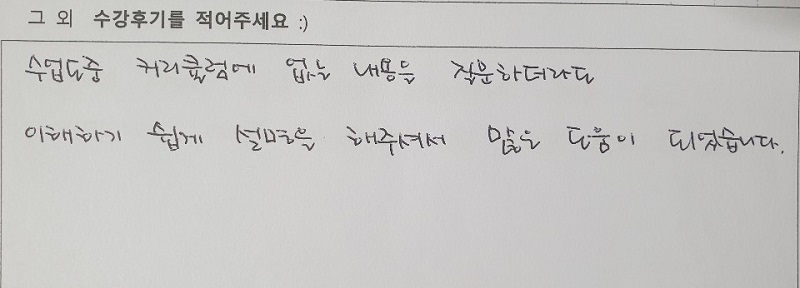 그 외 수강후기를 적어주세요 :)
수업도중 커리큘럼에 없는 내용을 질문하더라도
이해하기 쉽게 설명을 해주셔서 많은 도움이 되었습니다.